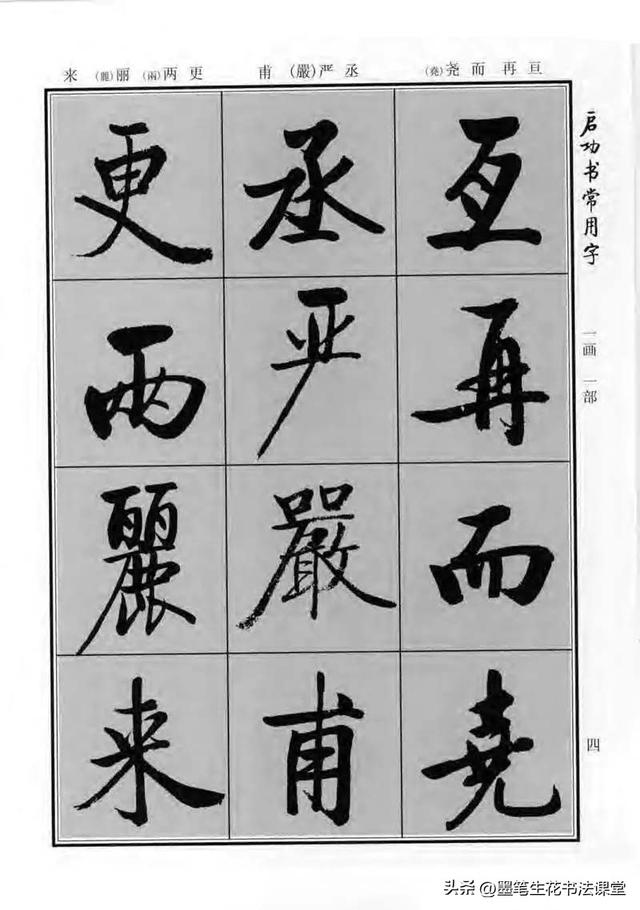 启功书常用字
一画 一部
四
亘再而尧(堯) 丞严(嚴)甫 更两(兩)丽(麗)来
亙再而堯
丞严嚴甫
更兩麗来
头条 @墨笔生花书法课堂